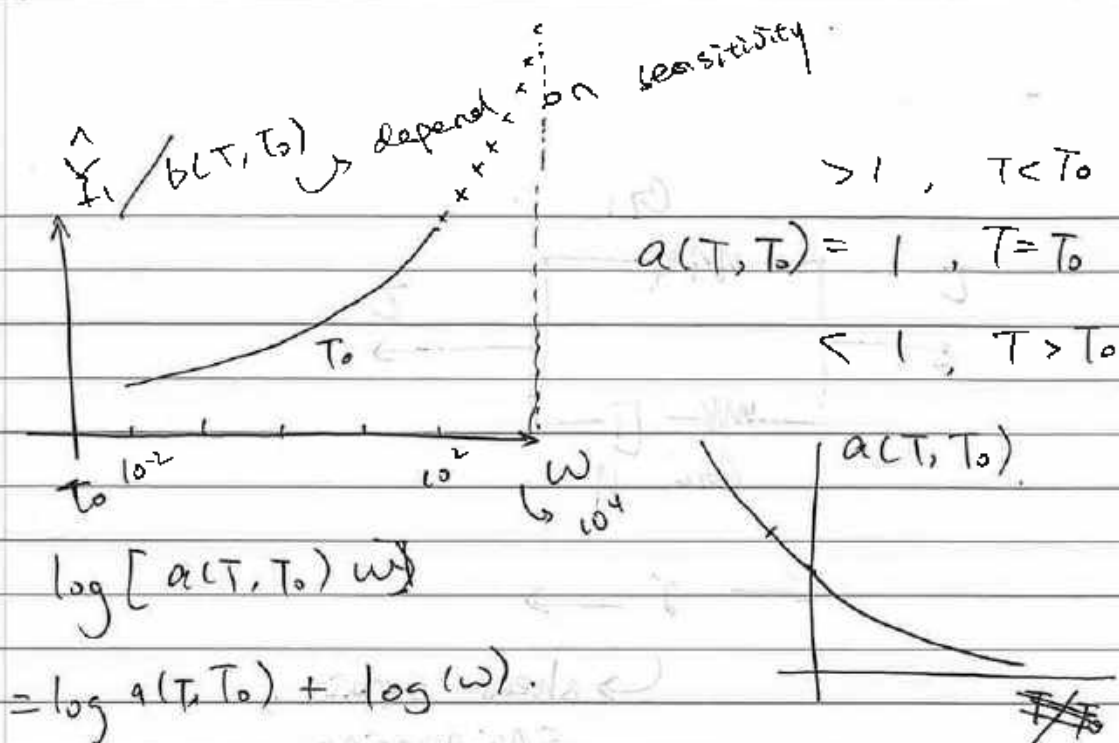 Ŷ₁ / b(T, T₀) ↳ depend on sensitivity
> 1 , T < T₀
a(T, T₀) = 1 , T = T₀
< 1 , T > T₀
T₀
10⁻² 10² ω
T₀ ↳ 10⁴
a(T, T₀).
log [ a(T, T₀) ω]
= log a(T, T₀) + log (ω).